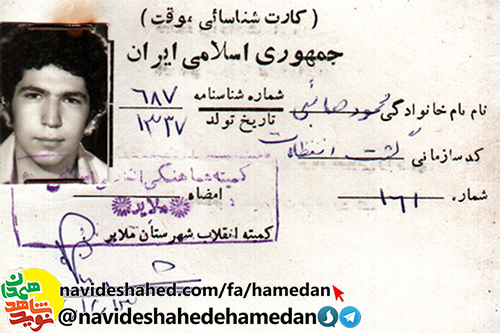 ( کارت شناسائی موقت )
جمهوری اسلامی ایران
نام نام خانوادگی محمود صائبی شماره شناسنامه ۶۸۷
تاریخ تولد ۱۳۳۷
کد سازمانی گشت انتظامات
شماره ۱۶۱ امضاء
کمیته هماهنگی انقلاب اسلامی
ملایر
کمیته انقلاب شهرستان ملایر
navideshahed.com/fa/hamedan
@navideshahedehamedan
نوید شاهد همدان